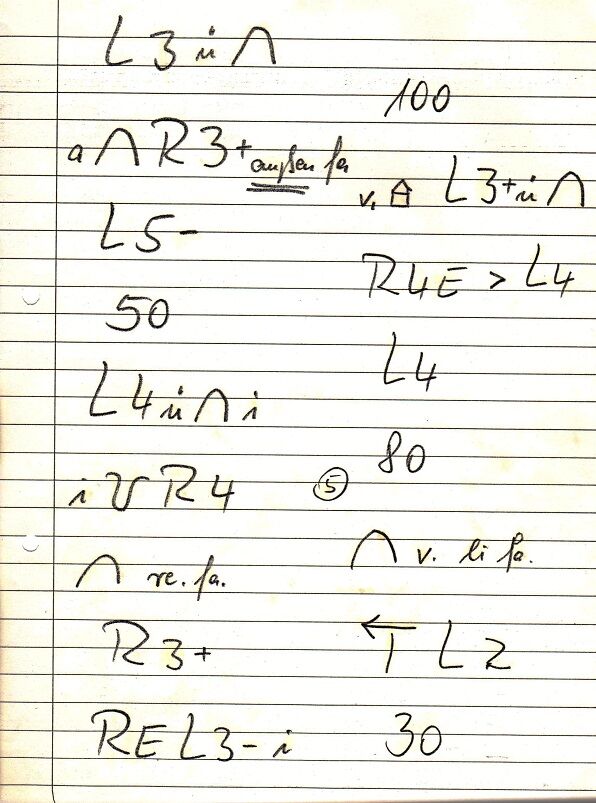 L 3 ü ∩
a ∩ R 3+ außen fa
L 5-
50
L 4 ü ∩ i
i R 4
∩ re. fa.
R 3+
R E L 3- i
100
v. L 3+ ü ∩
R 4 E > L 4
L 4
80
5
∩ v. li fa.
← L 2
30